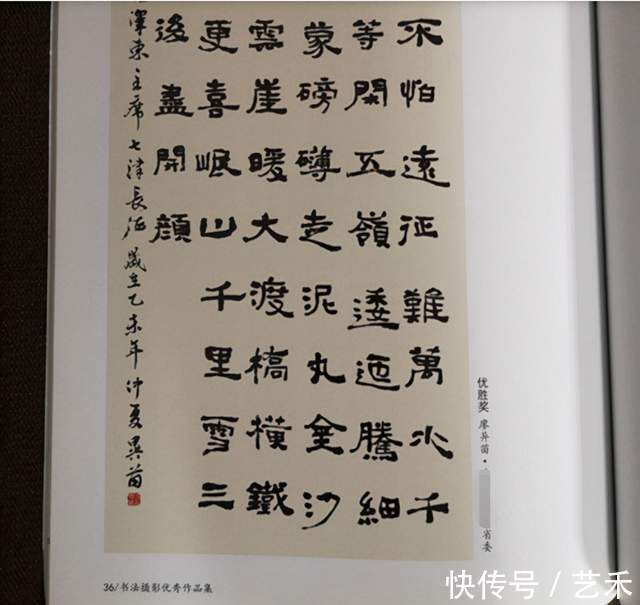 不怕遠征難萬水千
等閑五嶺逶迤騰細
蒙磅礴走泥丸金沙
雲崖暖大渡橋橫鐵
更喜岷山千里雪三
後盡開顏
澤東主席七律長征歲在乙未年仲夏異苗
优胜奖 廖异苗·省委
36/书法摄影优秀作品集
快传号/艺禾